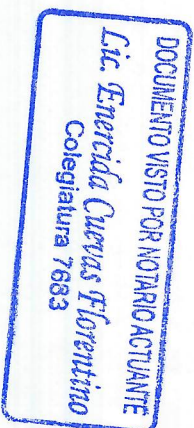 DOCUMENTO VISTO POR NOTARIO ACTUANTE
Lic. Enercida Cuevas Florentino
Colegiatura 7683